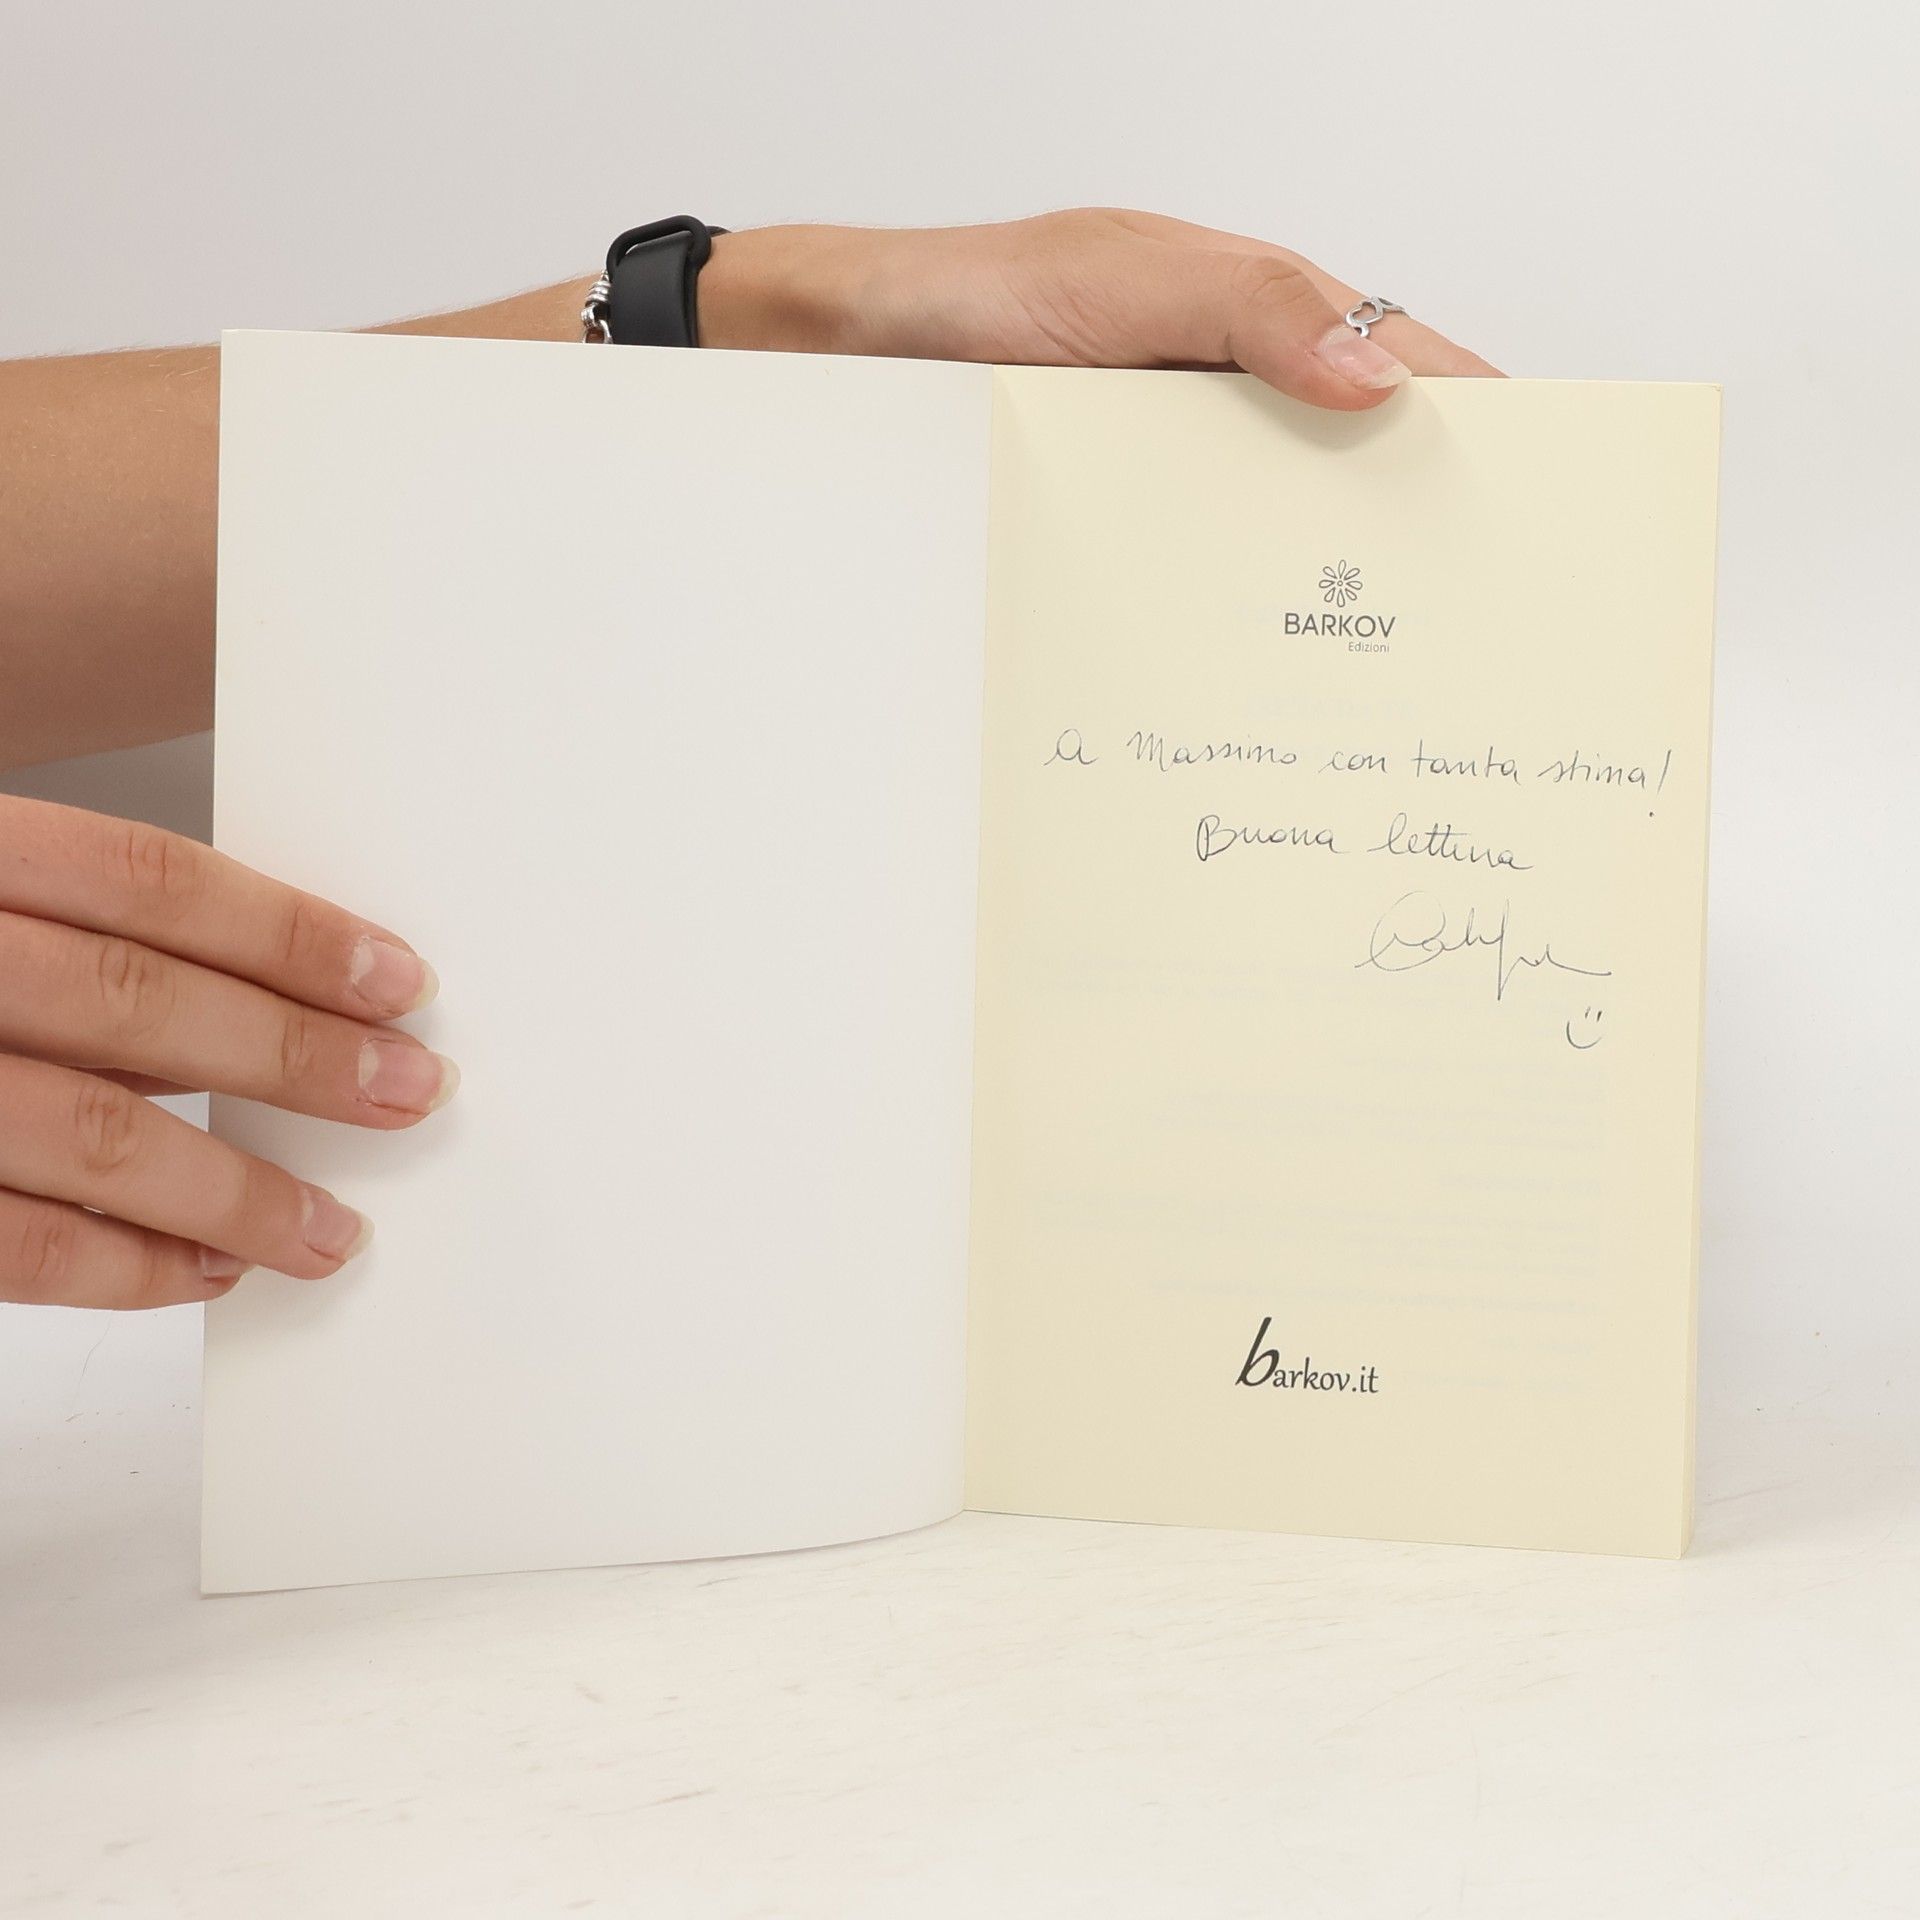 BARKOV
Edizioni
A Massimo con tanta stima!
Buona lettura
barkov.it